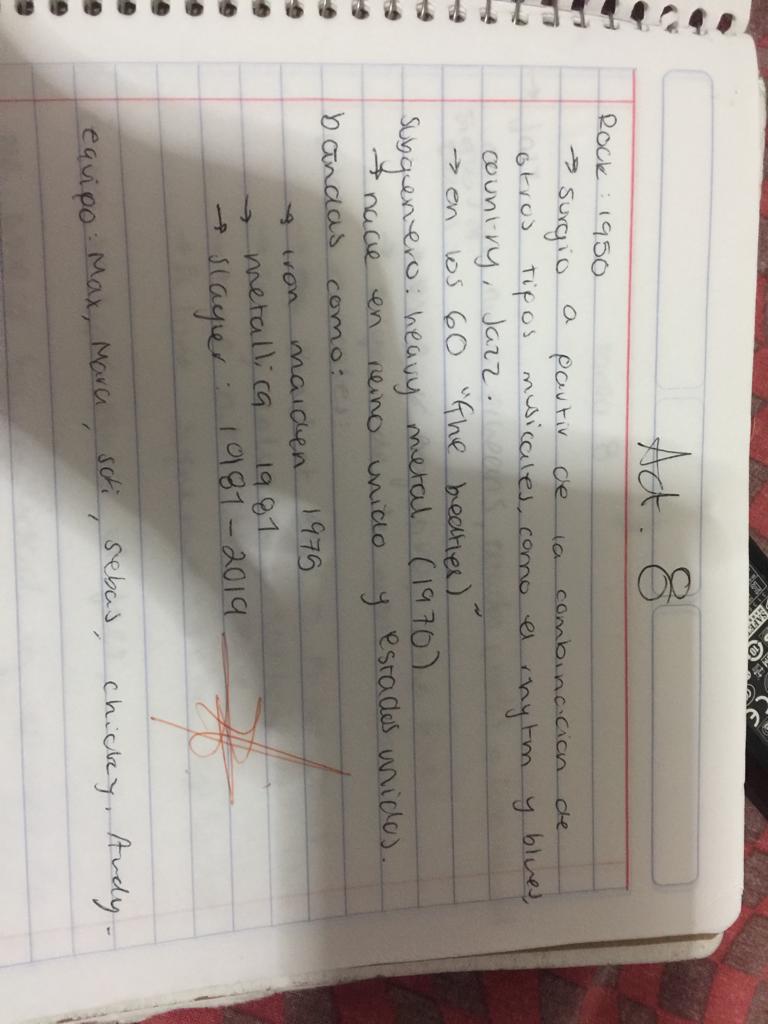 Act. 8
Rock: 1950
→ surgio a partir de la combinacion de
otros tipos musicales, como el rhytm y blues,
country, Jazz.
→ en los 60 "the beatles)"
Subgenero: heavy metal (1970)
→ nace en reino unido y estados unidos.
bandas como:
→ iron maiden 1975
→ metallica 1981
→ slayer: 1981-2019
equipo: Max, Mara, sofi, sebas, chickey, Andy-